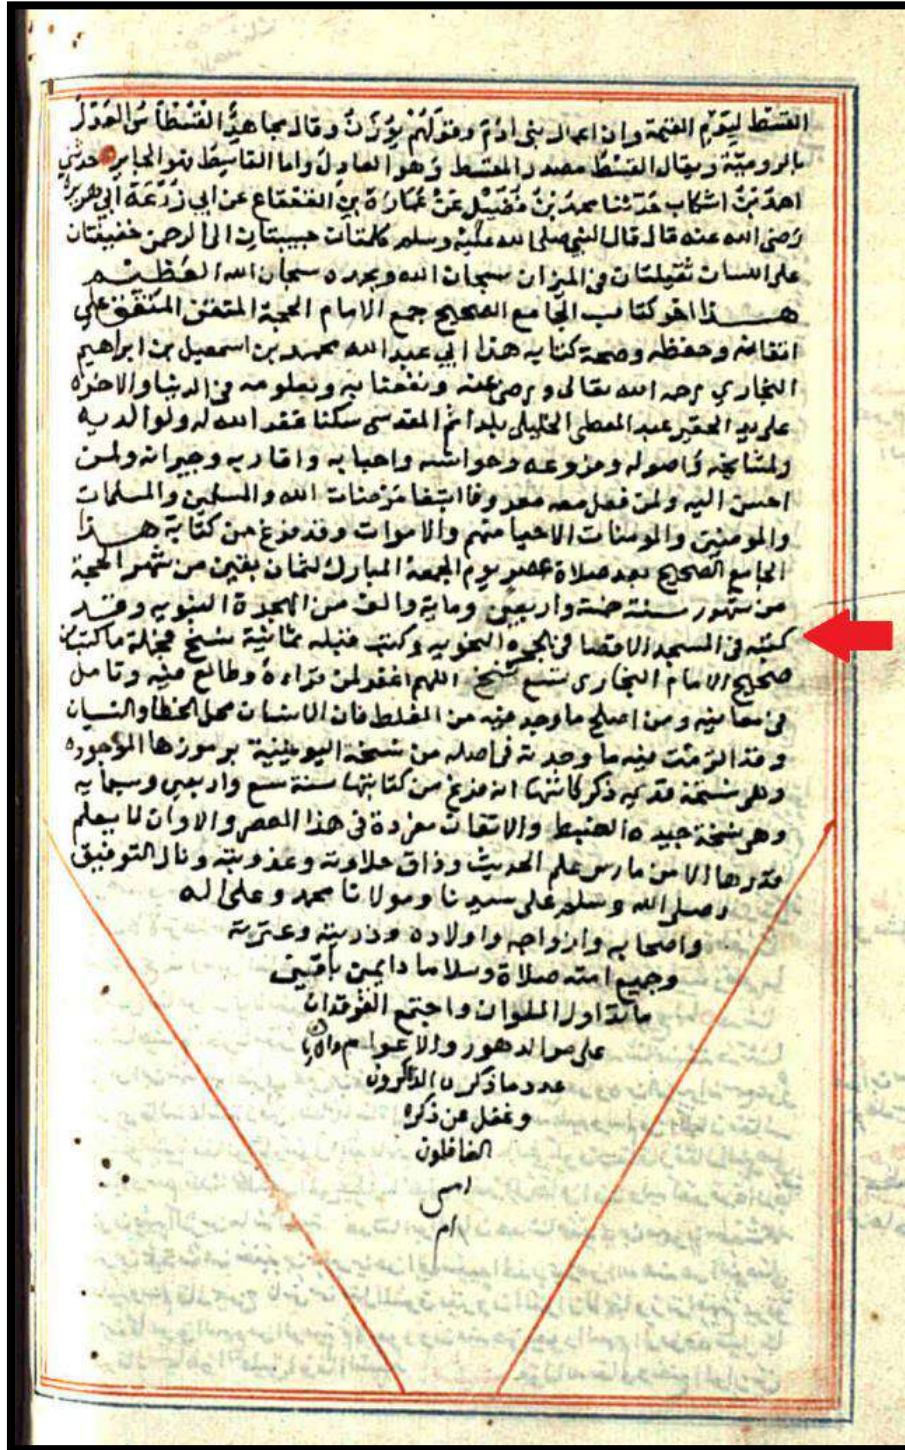 القسط ليوم القيمة وان اعمال بنى ادم وقولهم يوزن وقال مجاهد القسطاس العدل
بالرومية ويقال القسط مصدر المقسط وهو العادل واما القاسط فهو الجاير حدثني
احمد بن اشكاب حدثنا محمد بن فضيل عن عمارة بن القعقاع عن ابي زرعة ابي هريرة
رضى الله عنه قال قال النبي صلى الله عليه وسلم كلمتان حبيبتان الى الرحمن خفيفتان
على اللسان ثقيلتان في الميزان سبحان الله وبحمده سبحان الله العظيم
هذا اخر كتاب الجامع الصحيح جمع الامام الحجة المتقن المتفق علي
اتقانه وحفظه وصحة كتابه هذا ابي عبد الله محمد بن اسمعيل بن ابراهيم
البخاري رحمه الله تعالى ورضى عنه ونفعنا به وبعلومه في الدنيا والاخره
على يد الحقير عبد المعطى الخليلى بلدا ثم المقدسى سكنا غفر الله له ولوالديه
ولمشايخه واصوله وفروعه وحواشيه واحبابه واقاربه وجيرانه ولمن
احسن اليه ولمن فعل معه معروفا ابتغا مرضات الله والمسلمين والمسلمات
والمومنين والمومنات الاحيا منهم والاموات وقد فرغ من كتابة هذا
الجامع الصحيح بعد صلاة عصر يوم الجمعة المبارك لثمان بقين من شهر الحجة
من شهور سنة خمسة واربعين وماية والف من الهجرة النبويه وقد
كتبته في المسجد الاقصا في الحجره النحويه وكتبت قبله ثمانية نسخ فجملة ما كتبت من
صحيح الامام البخارى تسع نسخ اللهم اغفر لمن قراءه وطالع فيه وتامل
في معانيه ومن اصلح ما وجد فيه من الغلط فان الانسان محل الخطا والنسيان
وقد التزمت فيه ما وجدته في اصله من نسخة اليونينية برموزها الموجوده
وهى نسخة قديمه ذكر كاتبها انه فرغ من كتابتها سنة سبع واربعين وسبمايه
وهى نسخة جيده الضبط والاتقان مفردة في هذا العصر والاوان لا يعلم
قدرها الا من مارس علم الحديث وذاق حلاوته وعذوبته ونال التوفيق
وصلى الله وسلم على سيدنا ومولانا محمد وعلى اله
واصحابه وازواجه واولاده وذريته وعترته
وجميع امته صلاة وسلاما دايمين باقيين
ما تداول الملوان واجتمع الفرقدان
على مر الدهور والاعوام
عدد ما ذكره الذاكرون
وغفل عن ذكره
الغافلون
امين